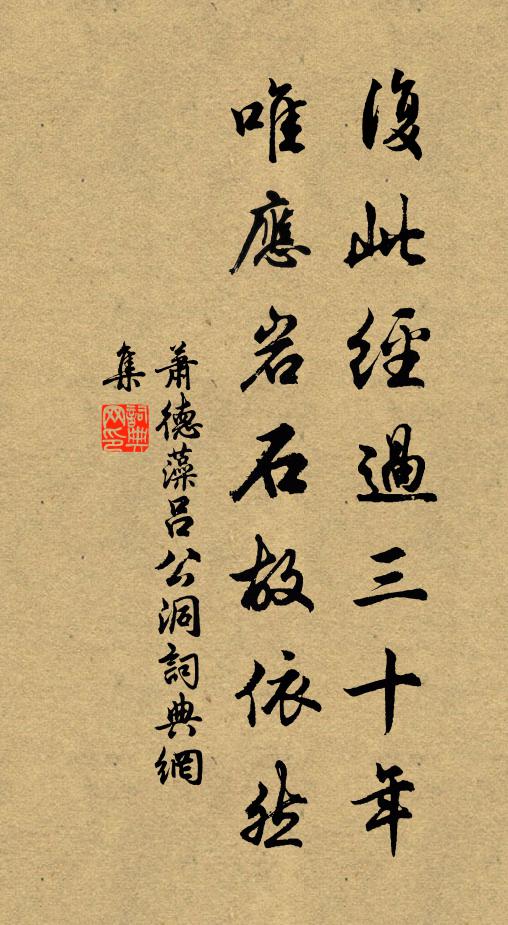 復此經過三十年
唯應岩石故依然
蕭德藻吕公洞詞典網
集
詞典
网印